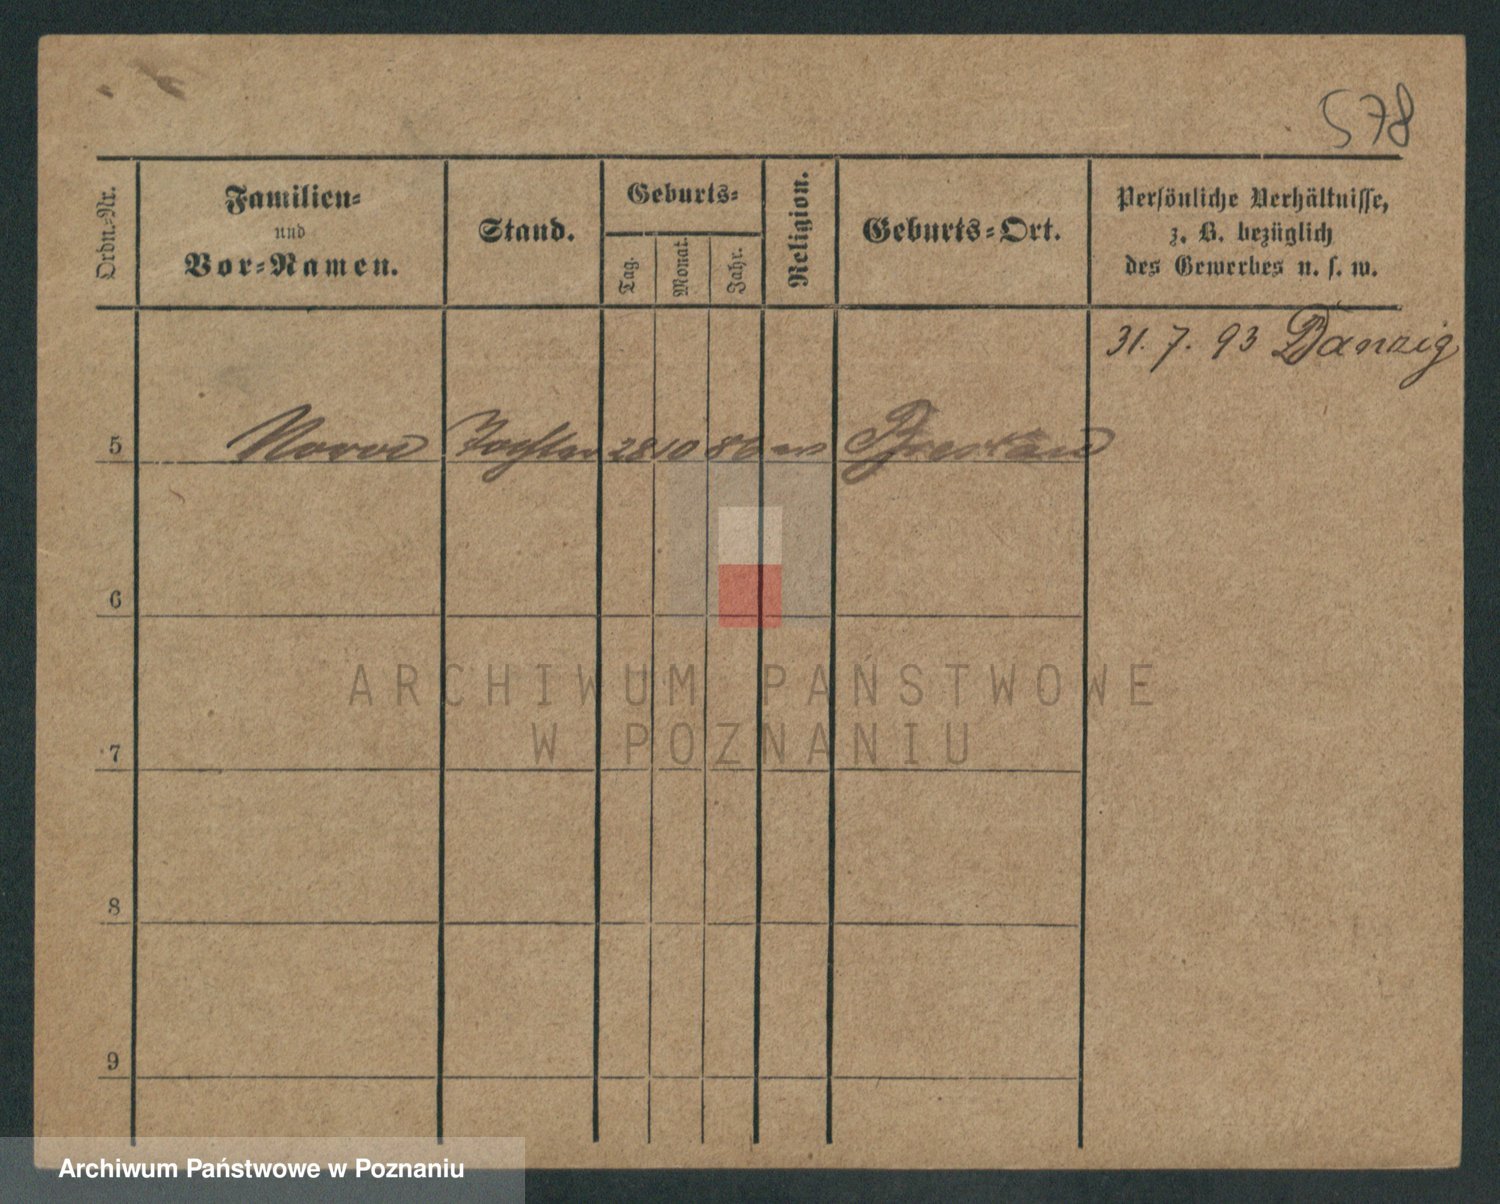 578
Ordn.-Nr.
Familien-
und
Vor-Namen.
Stand.
Geburts-
Tag.
Monat.
Jahr.
Religion.
Geburts-Ort.
Persönliche Verhältnisse,
z. B. bezüglich
des Gewerbes u. s. w.
31. 7. 93 Danzig
5 Tochter 28 10 86 Breslau
6
ARCHIWUM PAŃSTWOWE
W POZNANIU
7
8
9
Archiwum Państwowe w Poznaniu